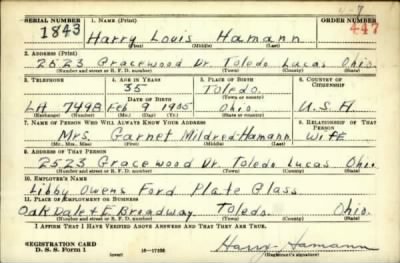 SERIAL NUMBER 1. NAME (Print) ORDER NUMBER
1843 Harry Louis Hamann 447
(First) (Middle) (Last)
2. ADDRESS (Print)
2523 Gracewood Dr. Toledo Lucas Ohio.
(Number and street or R. F. D. number) (Town) (County) (State)
3. TELEPHONE 4. AGE IN YEARS 5. PLACE OF BIRTH 6. COUNTRY OF CITIZENSHIP
35 Toledo.
DATE OF BIRTH (Town or county)
LA 7498 Feb 9 1905 Ohio. U.S.A.
(Exchange) (Number) (Mo.) (Day) (Yr.) (State or country)
7. NAME OF PERSON WHO WILL ALWAYS KNOW YOUR ADDRESS 8. RELATIONSHIP OF THAT PERSON
Mrs. Garnet Mildred Hamann Wife
(Mr., Mrs., Miss) (First) (Middle) (Last)
9. ADDRESS OF THAT PERSON
2523 Gracewood Dr. Toledo Lucas Ohio.
(Number and street or R. F. D. number) (Town) (County) (State)
10. EMPLOYER'S NAME
Libby Owens Ford Plate Glass
11. PLACE OF EMPLOYMENT OR BUSINESS
Oak Dale + E Broadway Toledo. Ohio.
(Number and street or R. F. D. number) (Town) (County) (State)
I AFFIRM THAT I HAVE VERIFIED ABOVE ANSWERS AND THAT THEY ARE TRUE.
REGISTRATION CARD
D. S. S. Form 1 Harry Hamann
(Registrant's signature)